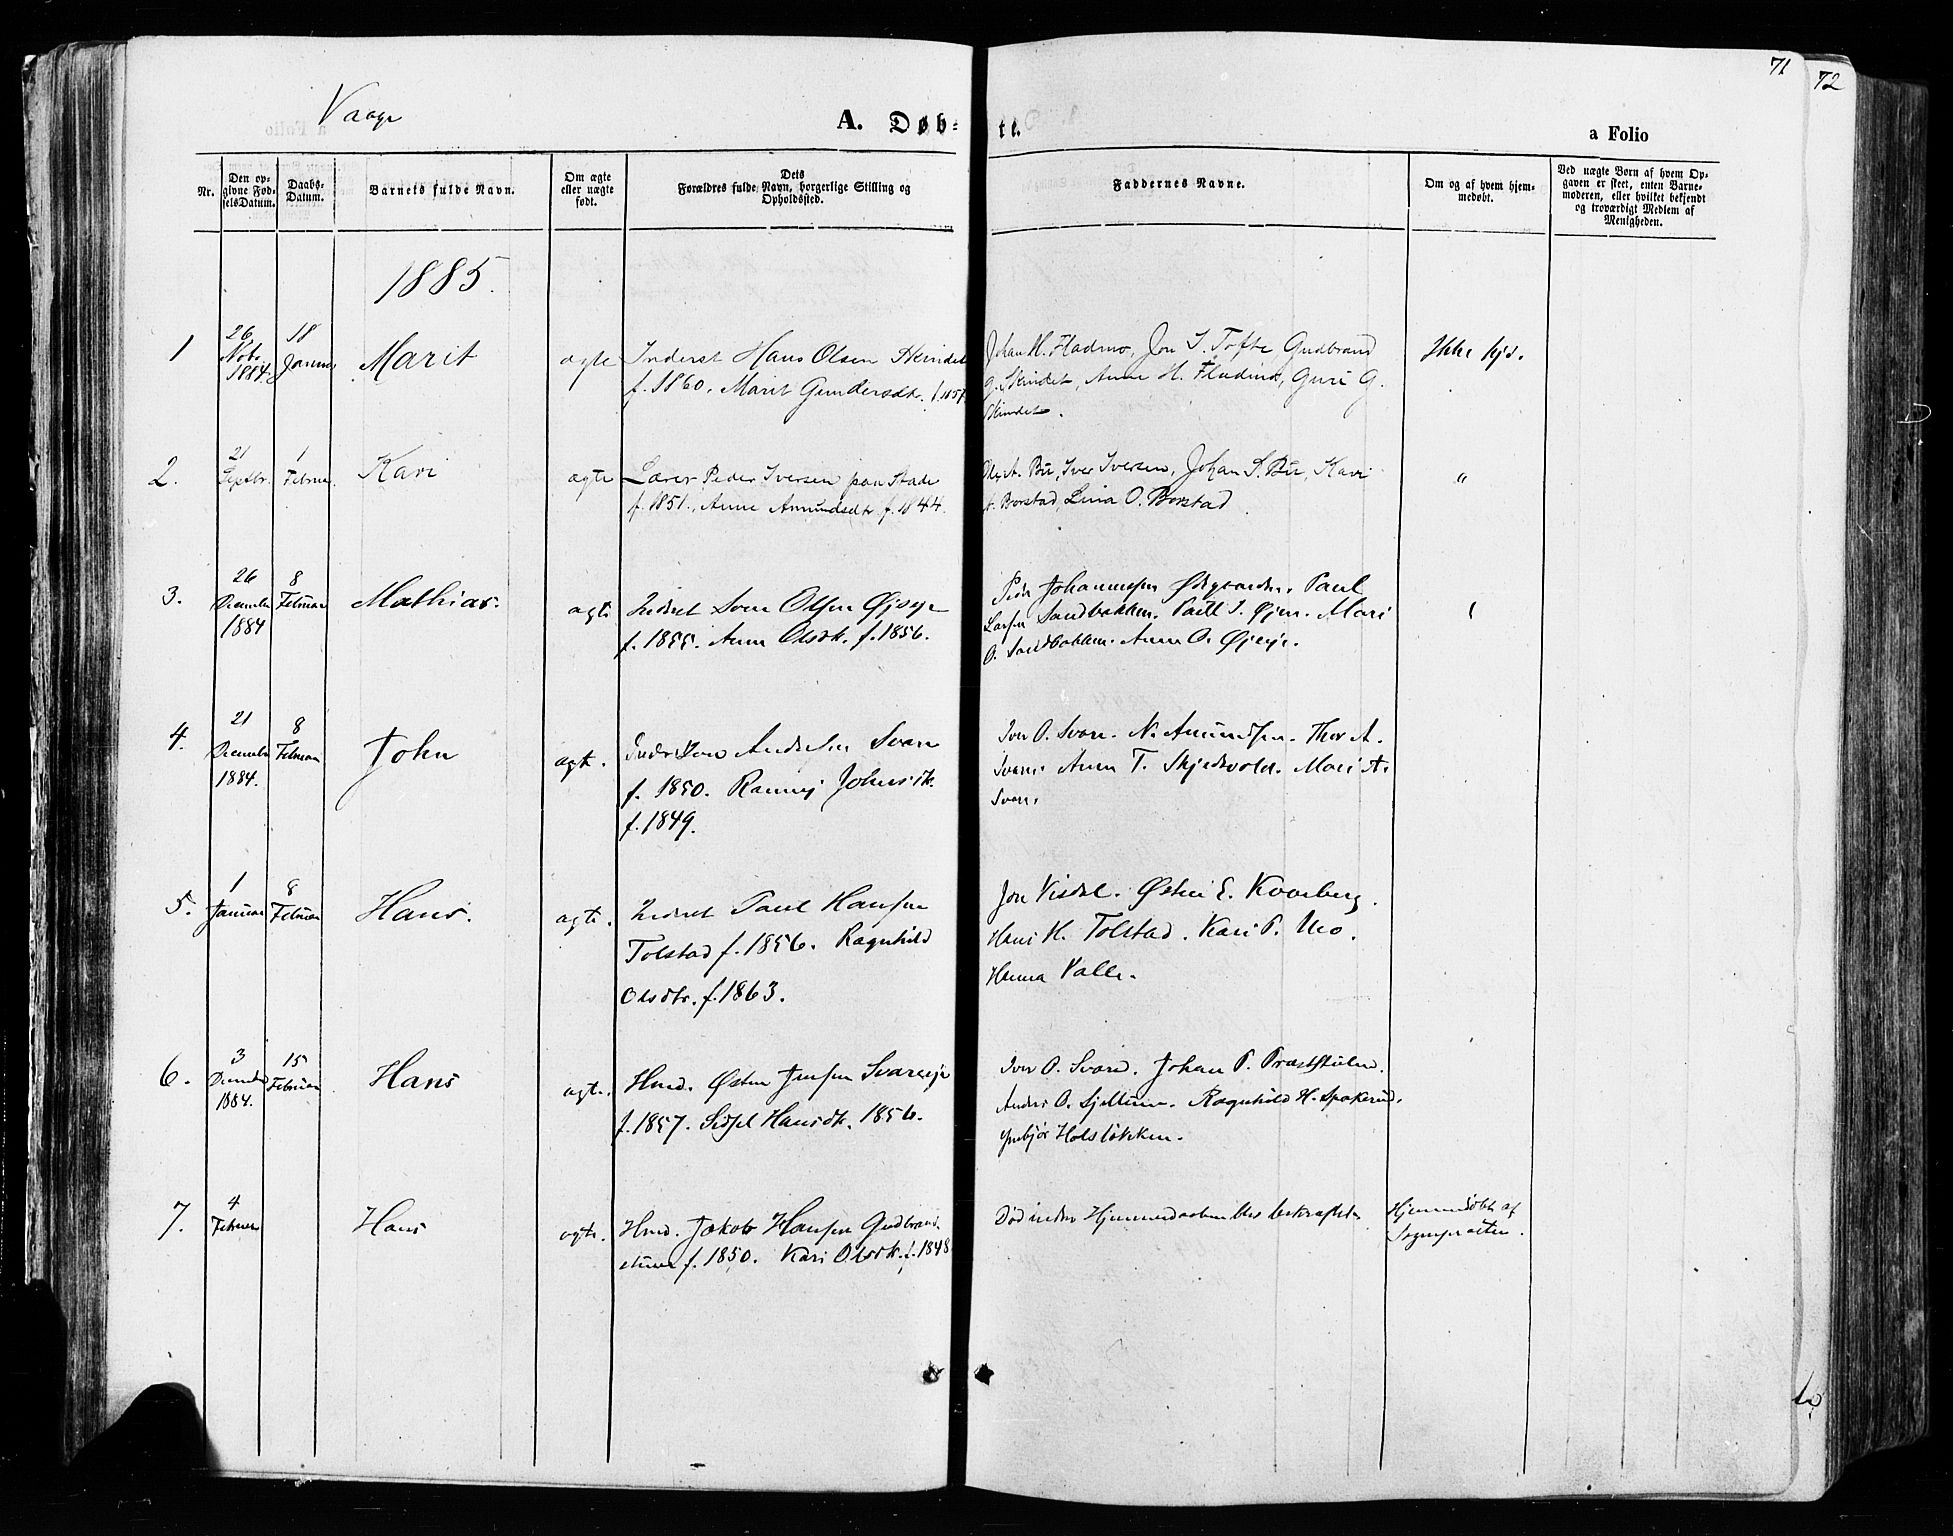 71
72
Vaage
A. Døb-
te.
a Folio
Nr.
Den op-
givne Fød-
selsDatum.
Daabs-
Datum.
Barnets fulde Navn.
Om ægte
eller uægte
født.
Dets
Forældres fulde Navn, borgerlige Stilling og
Opholdssted.
Faddernes Navne.
Om og af hvem hjem-
medøbt.
Ved uægte Børn af hvem Op-
gaven er skeet, enten Barne-
moderen, eller hvilket bekjendt
og troværdigt Medlem af
Menigheden.
1885.
1
26
Novbr
1884.
18
Januar
Marit
ægte
Inderst Hans Olsen Skindet
f. 1860. Marit Gundersdtr. f. 185
Johan H. Fladmo, Jon I. Tofte Gudbrand
G. Skindet, Anne H. Fladmo, Guri G.
Skindet.
Ikke hjd.
2.
21
Septbr.
1
Februar.
Kari
ægte
Lærer Peder Iversen paa Stade
f. 1851., Anne Amundsdtr f. 1844.
A. Bu, Iver Iversen, Johan S. Bu, Kari
Borstad, Lina O. Borstad.
"
3.
26
December
1884
8
Februar
Mathias.
ægte
Inderst Sven Olsen Øjeye
f. 1855. Anne Olsdtr. f. 1856.
Peder Johannessen Ødegaarden. Paul
Larsen Sandbakken. Paul I. Øjen. Mari
O. Sandbakken. Anne O. Øjeye.
4.
21
December
1884.
8
Februar
John
ægte.
Andersen Svare
f. 1850. Rannei Johnsdtr.
f. 1849.
Iver O. Svare. N. Amundsen. Thor A.
Svare. Anne T. Skjedsvold. Mari A.
Svare.
5.
1
Januar
8
Februar
Hans.
ægte.
Inderst Paul Hansen
Tolstad f. 1856. Ragnhild
Olsdtr. f. 1863.
Jon Visdal. Østen E. Kvarberg.
Hans H. Tolstad. Kari P. Mo.
Hanna Valle.
6.
3
December
1884.
15
Februar
Hans
ægte.
Hmd. Østen Jensen Svareeje
f. 1857. Sidsel Hansdtr. 1856.
Iver O. Svare. Johan P. Præsthulen.
Anders O. Sjellum. Ragnhild H. Spakerud.
Ynbjør Holsløkken.
7.
4
Februar
Hans
ægte.
Hmd. Jakob Hansen Gudbrand
stuen f. 1850. Kari Olsdtr. f. 1848
Død inden Hjemmedaaben blev bekræftet.
Hjemmedøbt af
Sognepræsten.